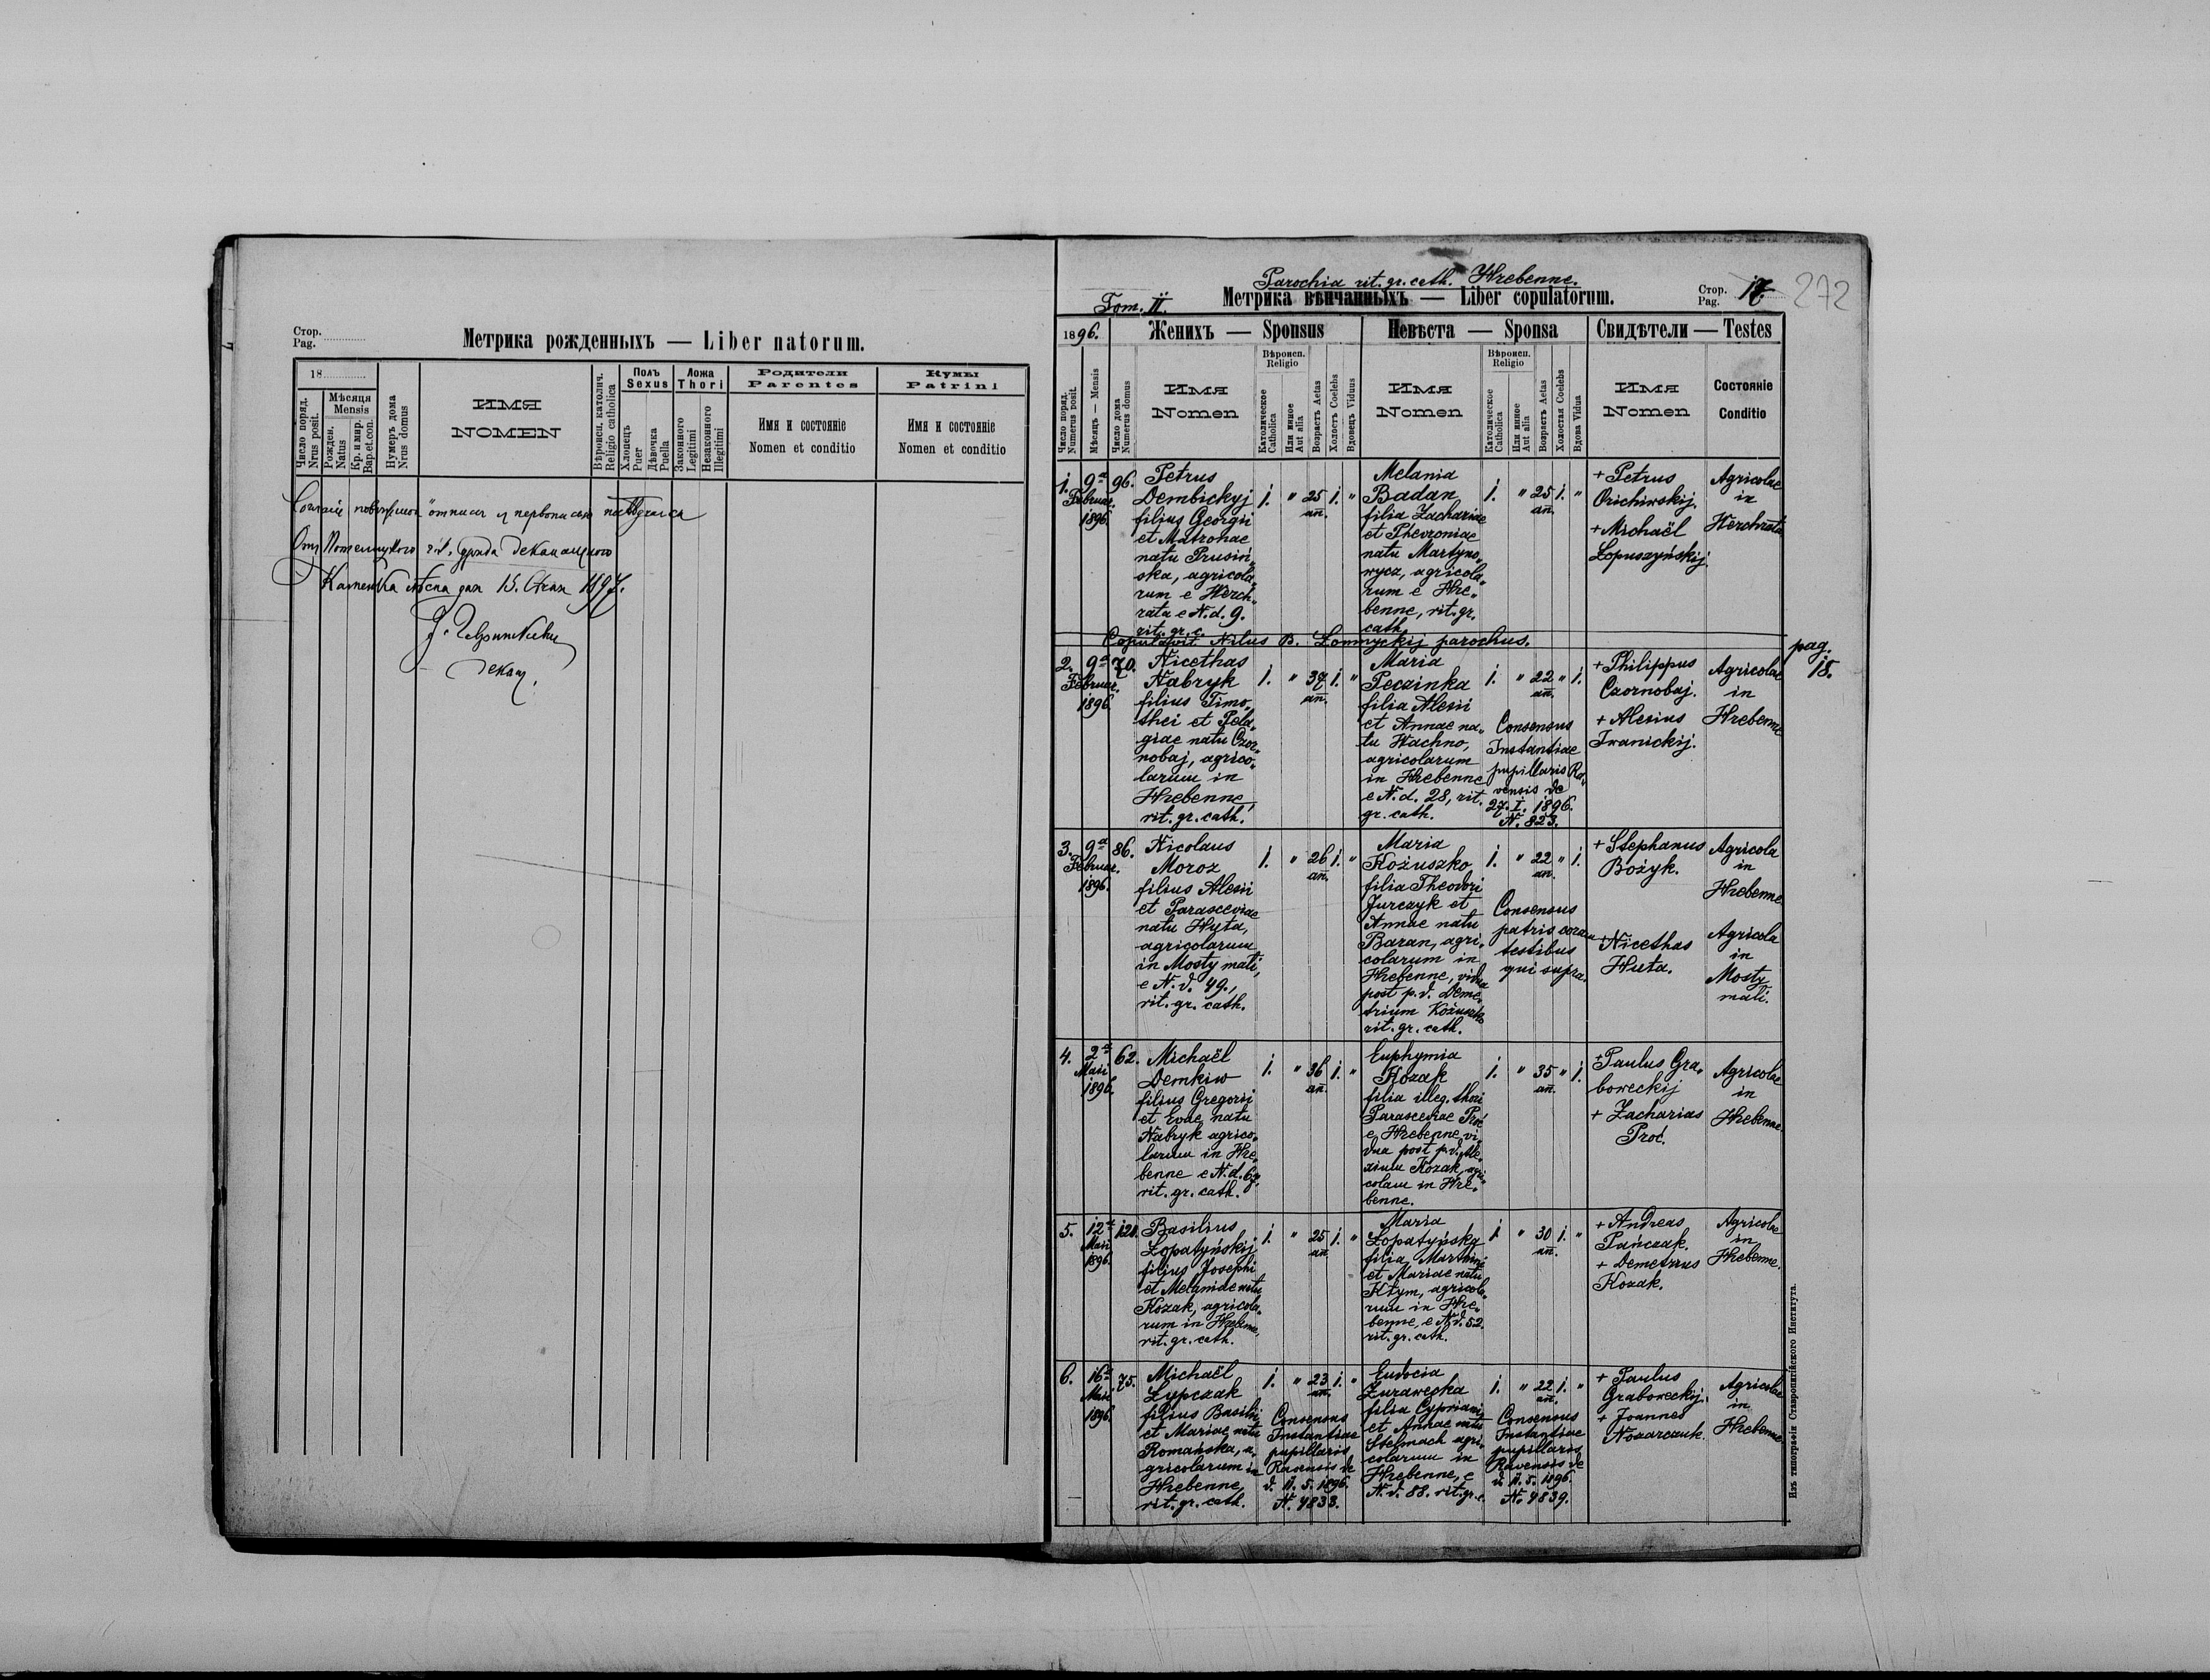 Стор.
Pag.
Метрика рожденныхъ — Liber natorum.
18
Число поряд.
Nrus posit.
Мѣсяця
Mensis
Рожден.
Natus
Кр. и мир.
Bap.et.con.
Нумеръ дома
Nrus domus
ИМЯ
NOMEN
Вѣроисп. католич.
Religio catholica
Полъ
Sexus
Хлопецъ
Puer
Дѣвочка
Puella
Ложа
Thori
Законного
Legitimi
Незаконного
Illegitimi
Родители
Parentes
Имя и состояніе
Nomen et conditio
Кумы
Patrini
Имя и состояніе
Nomen et conditio
15. 1897.
Parochia rit. gr. cath. Hrebenne.
Tom. II.
Метрика вѣнчанныхъ — Liber copulatorum.
Стор.
Pag.
17.
272
1896.
Женихъ — Sponsus
Невѣста — Sponsa
Свидѣтели — Testes
Число поряд.
Numerus posit.
Мѣсяць — Mensis
Число дома
Numerus domus
ИМЯ
Nomen
Вѣроисп.
Religio
Католическое
Catholica
Или инное
Aut alia
Возрастъ Aetas
Холостъ Coelebs
Вдовецъ Viduus
ИМЯ
Nomen
Вѣроисп.
Religio
Католическое
Catholica
Или инное
Aut alia
Возрастъ Aetas
Холостая Coelebs
Вдова Vidua
ИМЯ
Nomen
Состояніе
Conditio
1.
9a
Februar.
1896.
96.
Petrus
Dembickyj
filius Georgii
et Matronae
natu Prusiń„
ska, agricola„
rum e Herch„
rata e N. d. 9.
rit. gr. c.
1. " 25 1. "
an.
Melania
Badan,
filia Zachariae
et Thevroniae
natu Martyno„
wycz, agricola„
rum e Hre„
benne, rit. gr.
cath.
1. " 25 1. "
an.
+ Petrus
Orichiwskij.
+ Michaël
Łopuszyńskij.
Agricolae
in
Herchrata
Copulavit Nilus B. Lonnyckij parochus.
pag.
18.
2.
9a
Februar.
1896.
70.
Nicethas
Nabryk
filius Timo„
thei et Pela„
giae natu Czor„
nobaj, agrico„
larum in
Hrebenne,
rit. gr. cath.
1. " 37 1. "
an.
Maria
Peczinka
filia Alexii
et Annae na„
tu Hachno,
agricolarum
in Hrebenne
e N. d. 28, rit.
gr. cath.
1. " 22 " 1.
an.
Consensus
Instantiae
pupillaris Ra„
vensis de
27. I. 1896.
N. 823.
+ Philippus
Czornobaj.
+ Alexius
Iwanickij.
Agricolae
in
Hrebenne
3.
9a
Februar.
1896.
86.
Nicolaus
Moroz
filius Alexii
et Parasceviae
natu Huta,
agricolarum
in Mosty mali,
e N. d. 49.,
rit. gr. cath.
1. " 26 1. "
an.
Maria
Kożuszko
filia Theodori
Jurczyk et
Annae natu
Baran, agri„
colarum in
Hrebenne, vidua
post p. d. Deme„
trium Kożuszko
rit. gr. cath.
1. " 22 " 1.
an.
Consensus
patris coram
testibus
qui supra.
+ Stephanus
Bożyk.
+ Nicethas
Huta.
Agricola
in
Hrebenne
Agricola
in
Mosty
mali.
4.
2a
Maii
1896.
62.
Michaël
Demkiw
filius Gregorii
et Evae natu
Nabryk agrico„
larum in Hre„
benne e N. d. 67,
rit. gr. cath.
1. " 36 1. "
an.
Euphymia
Kozak
filia illeg. thori
Parasceviae Proć
e Hrebenne, vi„
dua post p. d. Ale„
xium Kozak, agri„
colam in Hre„
benne.
1. " 35 " 1.
an.
+ Paulus Gra„
boweckij
+ Zacharias
Proć.
Agricolae
in
Hrebenne.
5.
12a
Maii
1896.
120.
Basilius
Łopatyńskij
filius Josephi
et Melaniae natu
Kozak, agricola„
rum in Hrebenne,
rit. gr. cath.
1. " 25 1. "
an.
Maria
Łopatyńska
filia Martini
et Mariae natu
Kłym, agricola„
rum in Hre„
benne, e N. d. 52.
rit. gr. cath.
1. " 30 1. "
an.
+ Andreas
Pańczak.
+ Demetrius
Kozak.
Agricolae
in
Hrebenne.
6.
16a
Maii
1896.
75.
Michaël
Łypczak
filius Basilii
et Mariae natu
Romańska, a„
gricolarum in
Hrebenne,
rit. gr. cath.
1. " 23 1. "
an.
Consensus
Instantiae
pupillaris
Ravensis de
d. 11. 5. 1896.
N. 4833.
Eudocia
Żurawecka
filia Cypriani
et Annae natu
Stelmach agri„
colarum in
Hrebenne, e
N. d. 88. rit. gr. c.
1. " 22 1. "
an.
Consensus
Instantiae
pupillaris
Ravensis de
d. 11. 5. 1896.
N. 4839.
+ Paulus
Graboweckij.
+ Joannes
Nazarczuk.
Agricolae
in
Hrebenne
Изъ типографіи Ставропигійского Института.